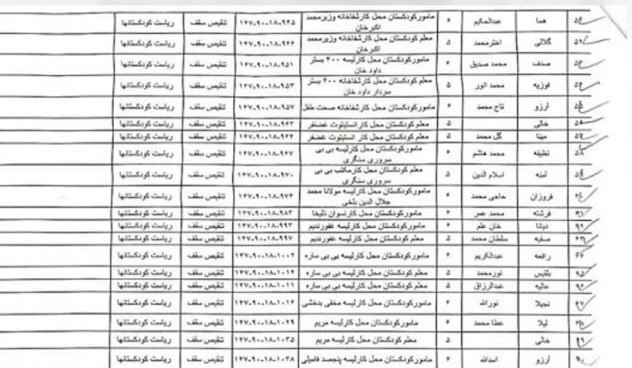 ۵۱ هما عبدالحکیم ۶ مامورکودکستان محل کارشفاخانه وزیرمحمد اکبرخان ۱۴۷-۹۰-۱۸-۹۴۵ تنقیص سقف ریاست کودکستانها
۵۲ گلالی اخترمحمد ۵ معلم کودکستان محل کارشفاخانه وزیرمحمد اکبرخان ۱۴۷-۹۰-۱۸-۹۴۶ تنقیص سقف ریاست کودکستانها
۵۳ صدف محمد صدیق ۶ مامورکودکستان محل کارلیسه ۴۰۰ بستر داود خان ۱۴۷-۹۰-۱۸-۹۵۱ تنقیص سقف ریاست کودکستانها
فوزیه محمد انور ۵ معلم کودکستان محل کارشفاخانه ۴۰۰ بستر سردار داود خان ۱۴۷-۹۰-۱۸-۹۵۳ تنقیص سقف ریاست کودکستانها
۵۵ آرزو تاج محمد ۶ مامورکودکستان محل کارشفاخانه صحت طفل ۱۴۷-۹۰-۱۸-۹۵۷ تنقیص سقف ریاست کودکستانها
خالی ۵ معلم کودکستان محل کار انستیتوت غضنفر ۱۴۷-۹۰-۱۸-۹۶۳ تنقیص سقف ریاست کودکستانها
۵۷ مینا گل محمد ۵ معلم کودکستان محل کار انستیتوت غضنفر ۱۴۷-۹۰-۱۸-۹۶۴ تنقیص سقف ریاست کودکستانها
۵۸ نظیفه محمد هاشم ۶ مامورکودکستان محل کارلیسه بی بی سروری سنگری ۱۴۷-۹۰-۱۸-۹۶۷ تنقیص سقف ریاست کودکستانها
۵۹ آمنه اسلام الدین ۵ معلم کودکستان محل کارمکتب بی بی سروری سنگری ۱۴۷-۹۰-۱۸-۹۷۰ تنقیص سقف ریاست کودکستانها
فروزان حاجی محمد ۶ مامورکودکستان محل کارلیسه مولانا محمد جلال الدین بلخی ۱۴۷-۹۰-۱۸-۹۷۶ تنقیص سقف ریاست کودکستانها
۶۱ فرشته محمد عمر ۶ مامورکودکستان محل کارنسوان ذلیخا ۱۴۷-۹۰-۱۸-۹۸۳ تنقیص سقف ریاست کودکستانها
۶۲ دیانا خان علم ۶ مامورکودکستان محل کارلیسه غفورندیم ۱۴۷-۹۰-۱۸-۹۹۳ تنقیص سقف ریاست کودکستانها
۶۳ صفیه سلطان محمد ۵ معلم کودکستان محل کارلیسه غفورندیم ۱۴۷-۹۰-۱۸-۹۹۷ تنقیص سقف ریاست کودکستانها
راقعه عبدالکریم ۶ مامورکودکستان محل کارلیسه بی بی ساره ۱۴۷-۹۰-۱۸-۱۰۰۲ تنقیص سقف ریاست کودکستانها
۶۵ بلقیس نورمحمد ۵ معلم کودکستان محل کارلیسه بی بی ساره تنقیص سقف ریاست کودکستانها
۶۶ عالیه عبدالرزاق ۵ معلم کودکستان محل کارلیسه بی بی ساره ۱۴۷-۹۰-۱۸-۱۰۱۱ تنقیص سقف ریاست کودکستانها
۶۷ نجیلا نورالله ۶ مامورکودکستان محل کارلیسه مخفی بدخشی ۱۴۷-۹۰-۱۸-۱۰۱۶ تنقیص سقف ریاست کودکستانها
۶۸ لیلا عطا محمد ۶ مامورکودکستان محل کارلیسه مریم ۱۴۷-۹۰-۱۸-۱۰۲۹ تنقیص سقف ریاست کودکستانها
۶۹ خالی ۵ معلم کودکستان محل کارلیسه مریم ۱۴۷-۹۰-۱۸-۱۰۳۵ تنقیص سقف ریاست کودکستانها
آرزو اسدالله ۶ مامورکودکستان محل کارلیسه پنجصد فامیلی ۱۴۷-۹۰-۱۸-۱۰۳۸ تنقیص سقف ریاست کودکستانها